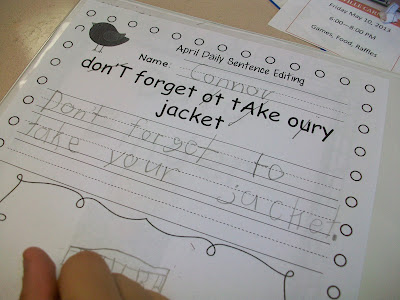 Friday May 10, 2013
6:00-8:00 PM
Games, Food, Raffles
April Daily Sentence Editing
Name: Connor
don'T forget ot tAke oury
jacket
Don't forget to
take your jacket.